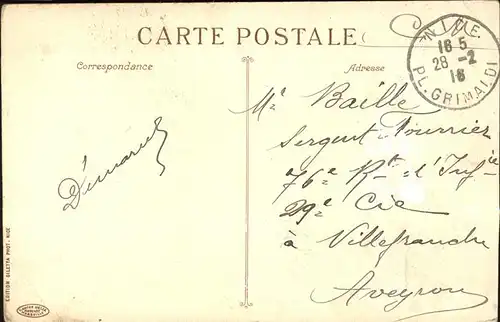 CARTE POSTALE
Correspondance
Adresse
NICE
16 5
28 -2
16
PL. GRIMALDI
Mr Baille
Sergent-Fourrier
76e Rt d'Infie
29e Cie
à Villefranche
Aveyron
EDITION GILETTA PHOT. NICE